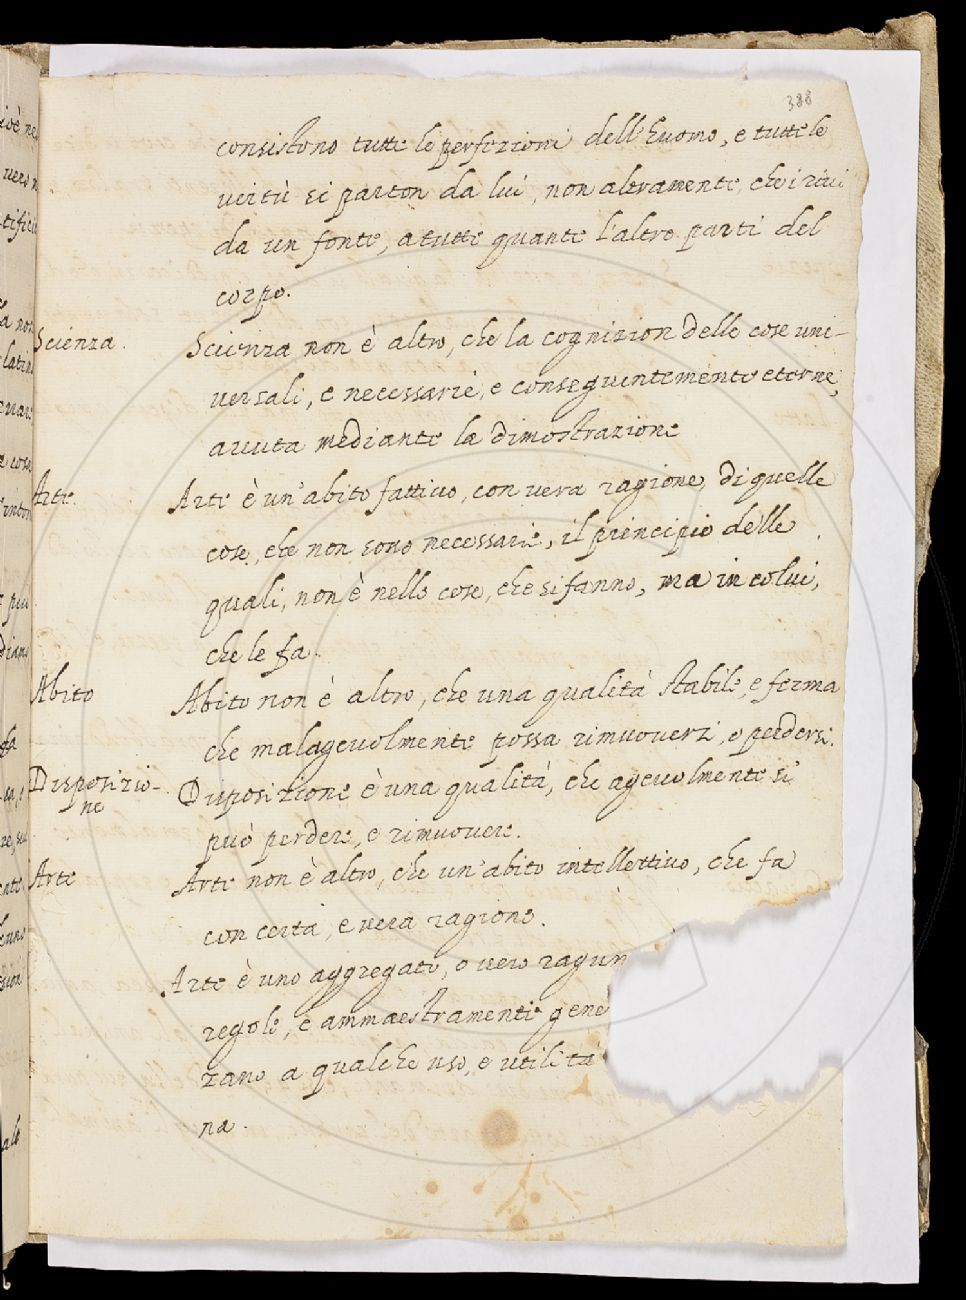 388
consistono tutte le perfezioni dell'huomo, e tutte le
virtù si parton da lui, non altramente, che i rivi
da un fonte, a tutte quante l'altre parti del
corpo.
Scienza. Scienza non è altro, che la cognizion delle cose uni-
versali, e necessarie, e conseguentemente eterne,
avuta mediante la dimostrazione
Arte. Arte è un'abito fattivo, con vera ragione, di quelle
cose, che non sono necessarie, il principio delle
quali, non è nelle cose, che si fanno, ma in colui,
che le fa.
Abito Abito non è altro, che una qualità stabile, e ferma
che malagevolmente possa rimuoversi, o perdersi.
Disposizio- Disposizione è una qualità, che agevolmente si
ne può perdere, e rimuovere.
Arte Arte non è altro, che un'abito intellettivo, che fa
con certa, e vera ragione.
Arte è uno aggregato, o vero ragun
regole, e ammaestramenti gene
zano a qualche uso, e utilità
na.